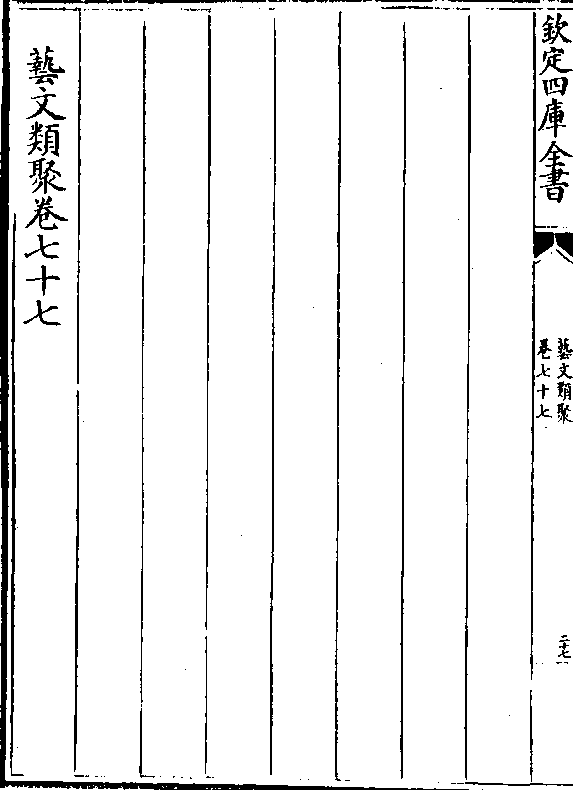 欽定四庫全書
藝文類聚
卷七十七
二十七
藝文類聚卷七十七